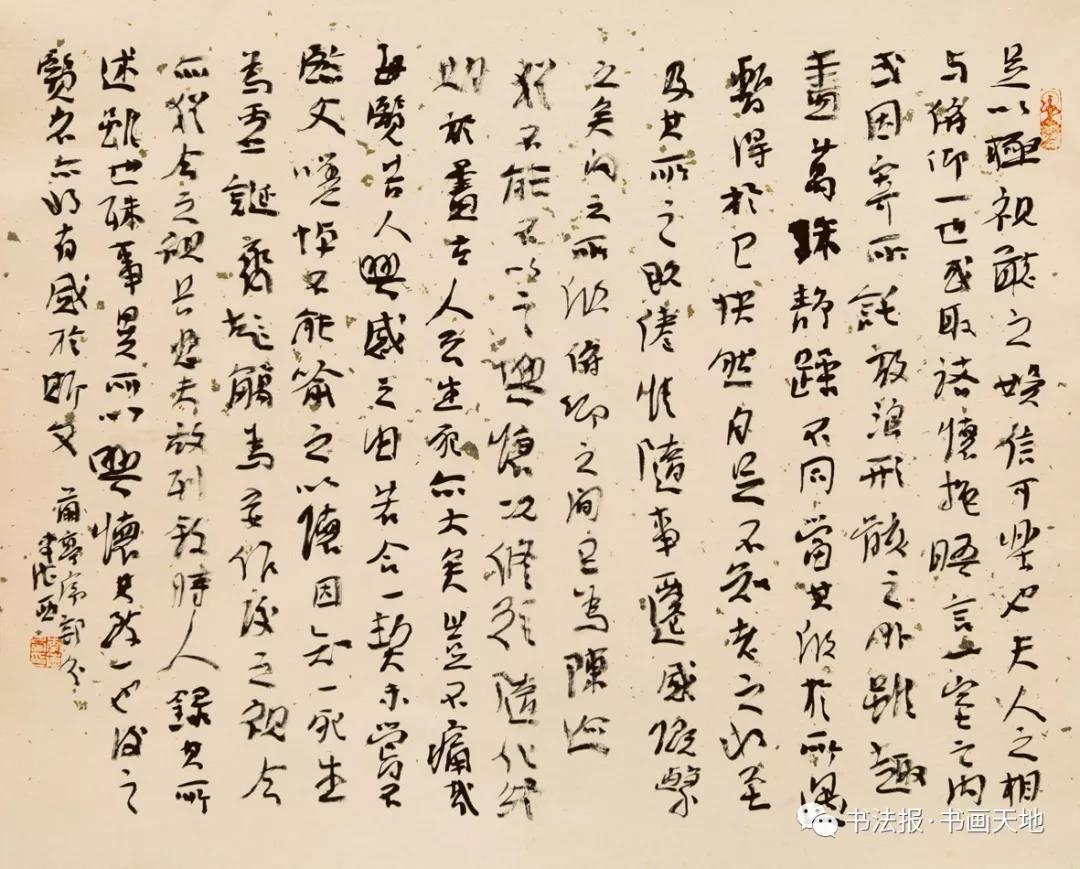 足以極視聽之娱信可樂也夫人之相
与俯仰一世或取諸懷抱晤言一室之内
或因寄所託放浪形骸之外雖趣
舍萬殊静躁不同當其欣於所遇
暫得於己快然自足不知老之将至
及其所之既倦情隨事遷感慨繫
之矣向之所欣俯仰之間已為陳迹
猶不能不以之興懷况修短隨化終
期於盡古人云生死亦大矣豈不痛哉
每覽昔人興感之由若合一契未嘗不
臨文嗟悼不能喻之以懷固知一死生
為虚誕齊彭殤為妄作後之視今
亦猶今之視昔悲夫故列叙時人錄其所
述雖世殊事異所以興懷其致一也後之
覽者亦将有感於斯文
蘭亭序部分
书法报·书画天地